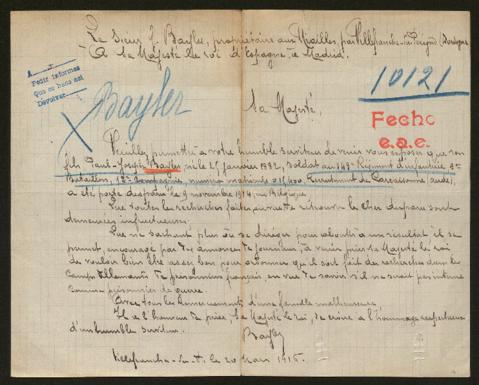 Le Sieur J. Bayler, propriétaire aux Mailles, par Villefranche-du-Périgord (Dordogne
A Sa Majesté le roi d'Espagne, à Madrid.
Pedir informes
que se hacen así
Devolver
10121
Bayler
X
Sa Majesté,
Fecho
e.a.e.
Veuillez permettre à votre humble serviteur de venir vous exposer que son
fils Paul-Joseph Bayler, né le 25 janvier 1892, soldat au 143e Régiment d'infanterie, 2e
Bataillon, Compagnie, numéro matricule Recrutement de Carcassonne (Aude)
a été porté disparu le 9 novembre 1914, en Belgique.
Que toutes les recherches faites en vue de retrouver le cher disparu sont
demeurées infructueuses.
Que ne sachant plus où se diriger pour aboutir à un résultat il se
permet, encouragé par des annonces de journaux, à venir prier Sa Majesté le roi
de vouloir bien être assez bon pour ordonner qu'il soit fait des recherches dans les
Camps Allemands de prisonniers français, en vue de savoir s'il ne serait pas interné
comme prisonnier de guerre.
Avec tous les remerciements d'une famille malheureuse
Il a l'honneur de prier, Sa Majesté le roi, de croire à l'hommage respectueux
d'un humble serviteur.
Bayler
Villefranche-du-P. le 20 Mars 1915.